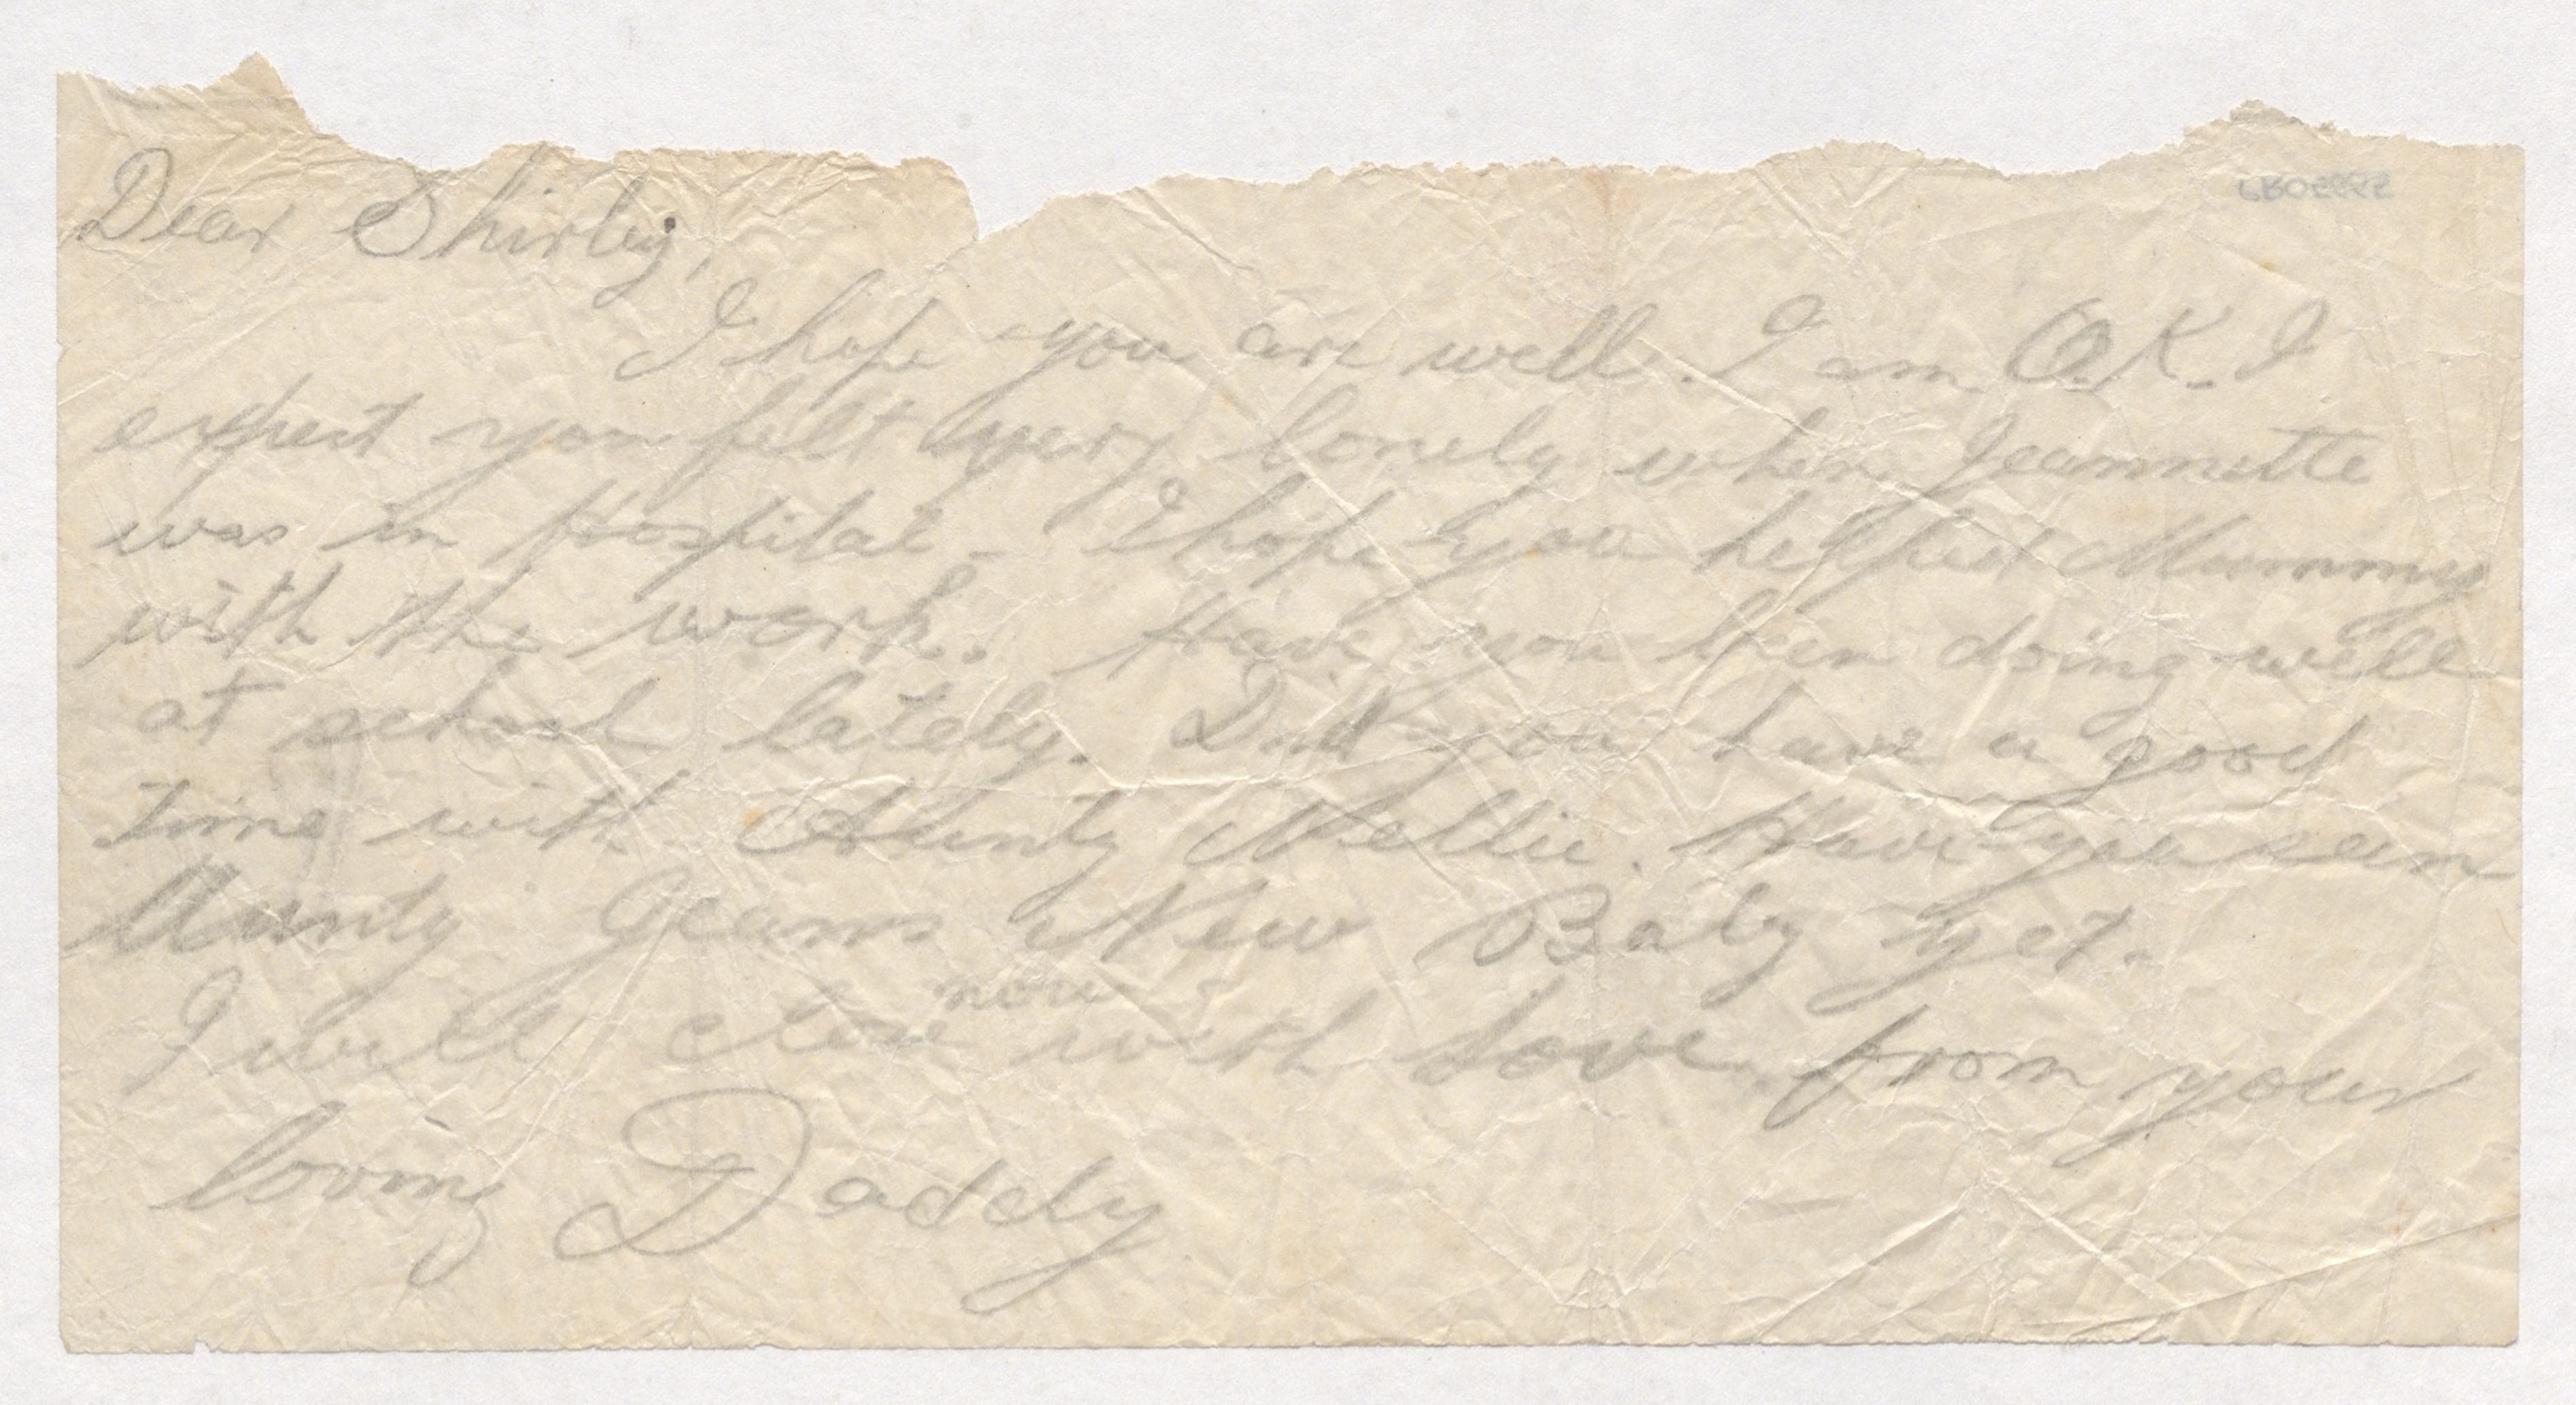 Dear Shirley,
I hope you are well. I am O.K. I
expect you felt very lonely when Jeannette
was in Hospital - I hope you helped Mummy
with the work. Have you been doing well
at school lately. Did you have a good
time with Aunty Nellie. Have you seen
Aunty Jeans New Baby yet.
now
I will close with love from your
loving Daddy